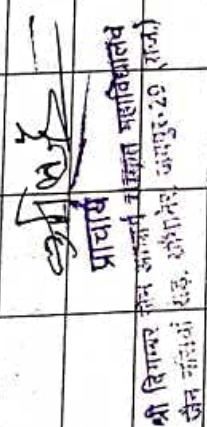 प्राचार्य
श्री दिगम्बर जैन आचार्य संस्कृत महाविद्यालय
जैन नसियां रोड, सांगानेर, जयपुर-29 (राज.)